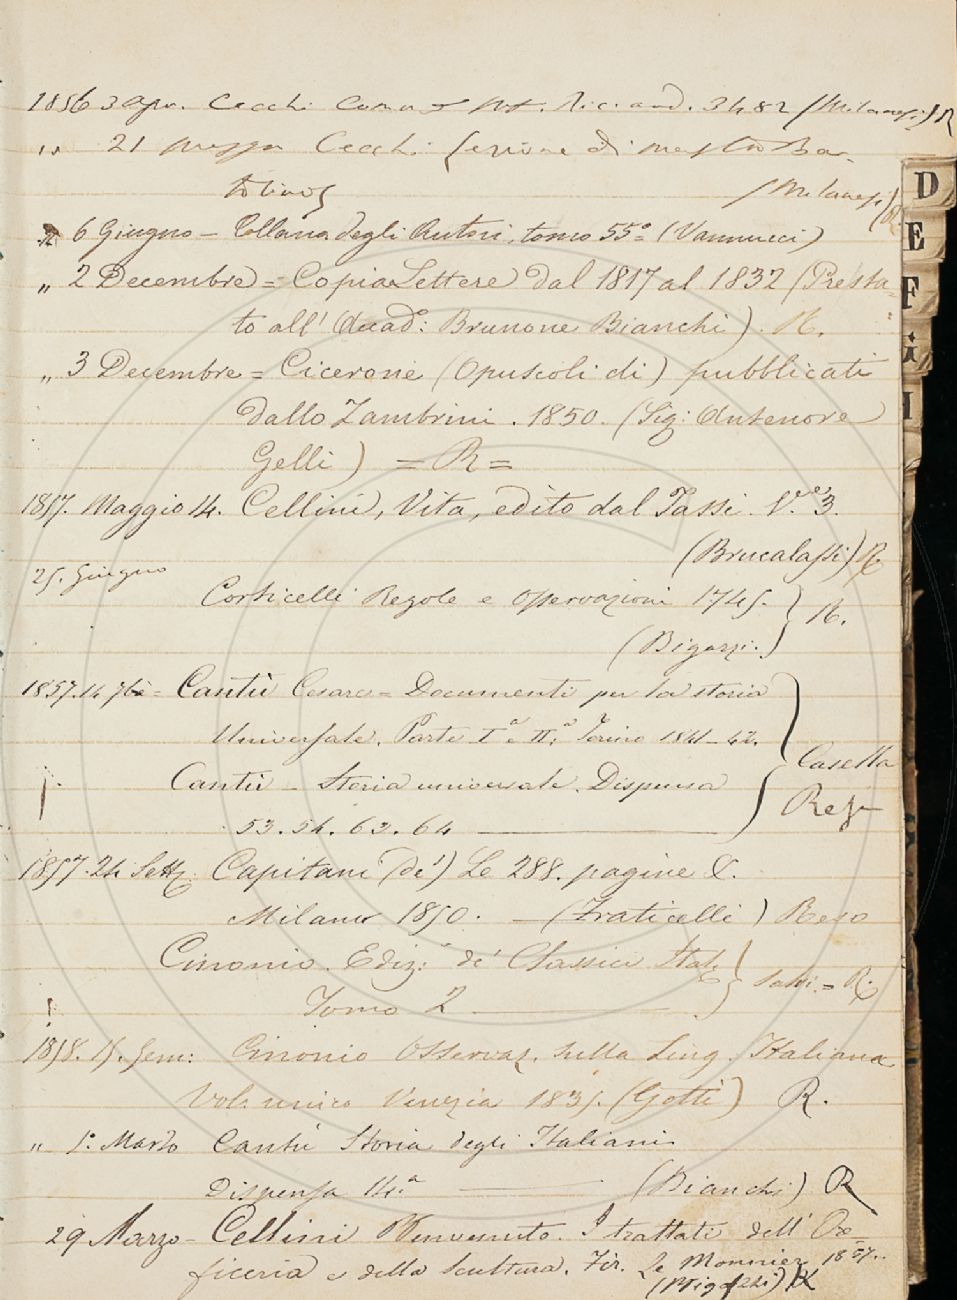 1856 3 Apr. Cecchi Com. ms. Riccard. 3482 (Milanesi) R
" 21 Cecchi Lezione di maestro Ba-
(Milanesi) R
" 6 Giugno – Collana degli Autori, tomo 55º = (Vannucci)
" 2 Decembre = Copia Lettere dal 1817 al 1832 (Presta-
to all' Accad: Brunone Bianchi). R.
" 3 Decembre = Cicerone (Opuscoli di) pubblicati
dallo Zambrini. 1850. (Sig: Antenore
Gelli) = R =
1857. Maggio 14. Cellini, Vita, edito dal Tassi. V.i 3.
(Brucalassi) R
25. Giugno
Corticelli Regole e Osservazioni 1745. R.
(Bigazzi.)
1857. 14 7bre = Cantù Cesare = Documenti per la storia
Universale. Parte Iª e IIª Torino 1841-42.
Cantù – Storia universale. Dispensa
Casella
53. 54. 63. 64
Reso
1857. 24 Sett. Capitani (de') Le 288. pagine &.
Milano 1850. – (Fraticelli) Reso
Cinonio. Ediz. de' Classici Ital.
Salvi. = R.
Tomo 2
1858. 15. Gen: Cinonio Osservaz. sulla Ling. Italiana
Vol. unico Venezia 1835. (Gotti) R.
" 1º Marzo Cantù Storia degli Italiani
Dispensa 14.ª (Bianchi) R
29 Marzo – Cellini Benvenuto. I trattati dell' Ore-
ficeria e della Scultura. Fir. Le Monnier 1857.
R
D
E
F
G
I